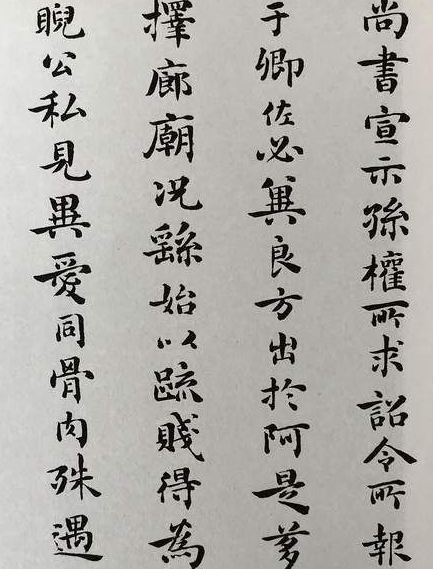 尚書宣示孫權所求詔令所報
于卿佐必冀良方出於阿是芻
擇廊廟况繇始以疏賤得為
睨公私見異愛同骨肉殊遇